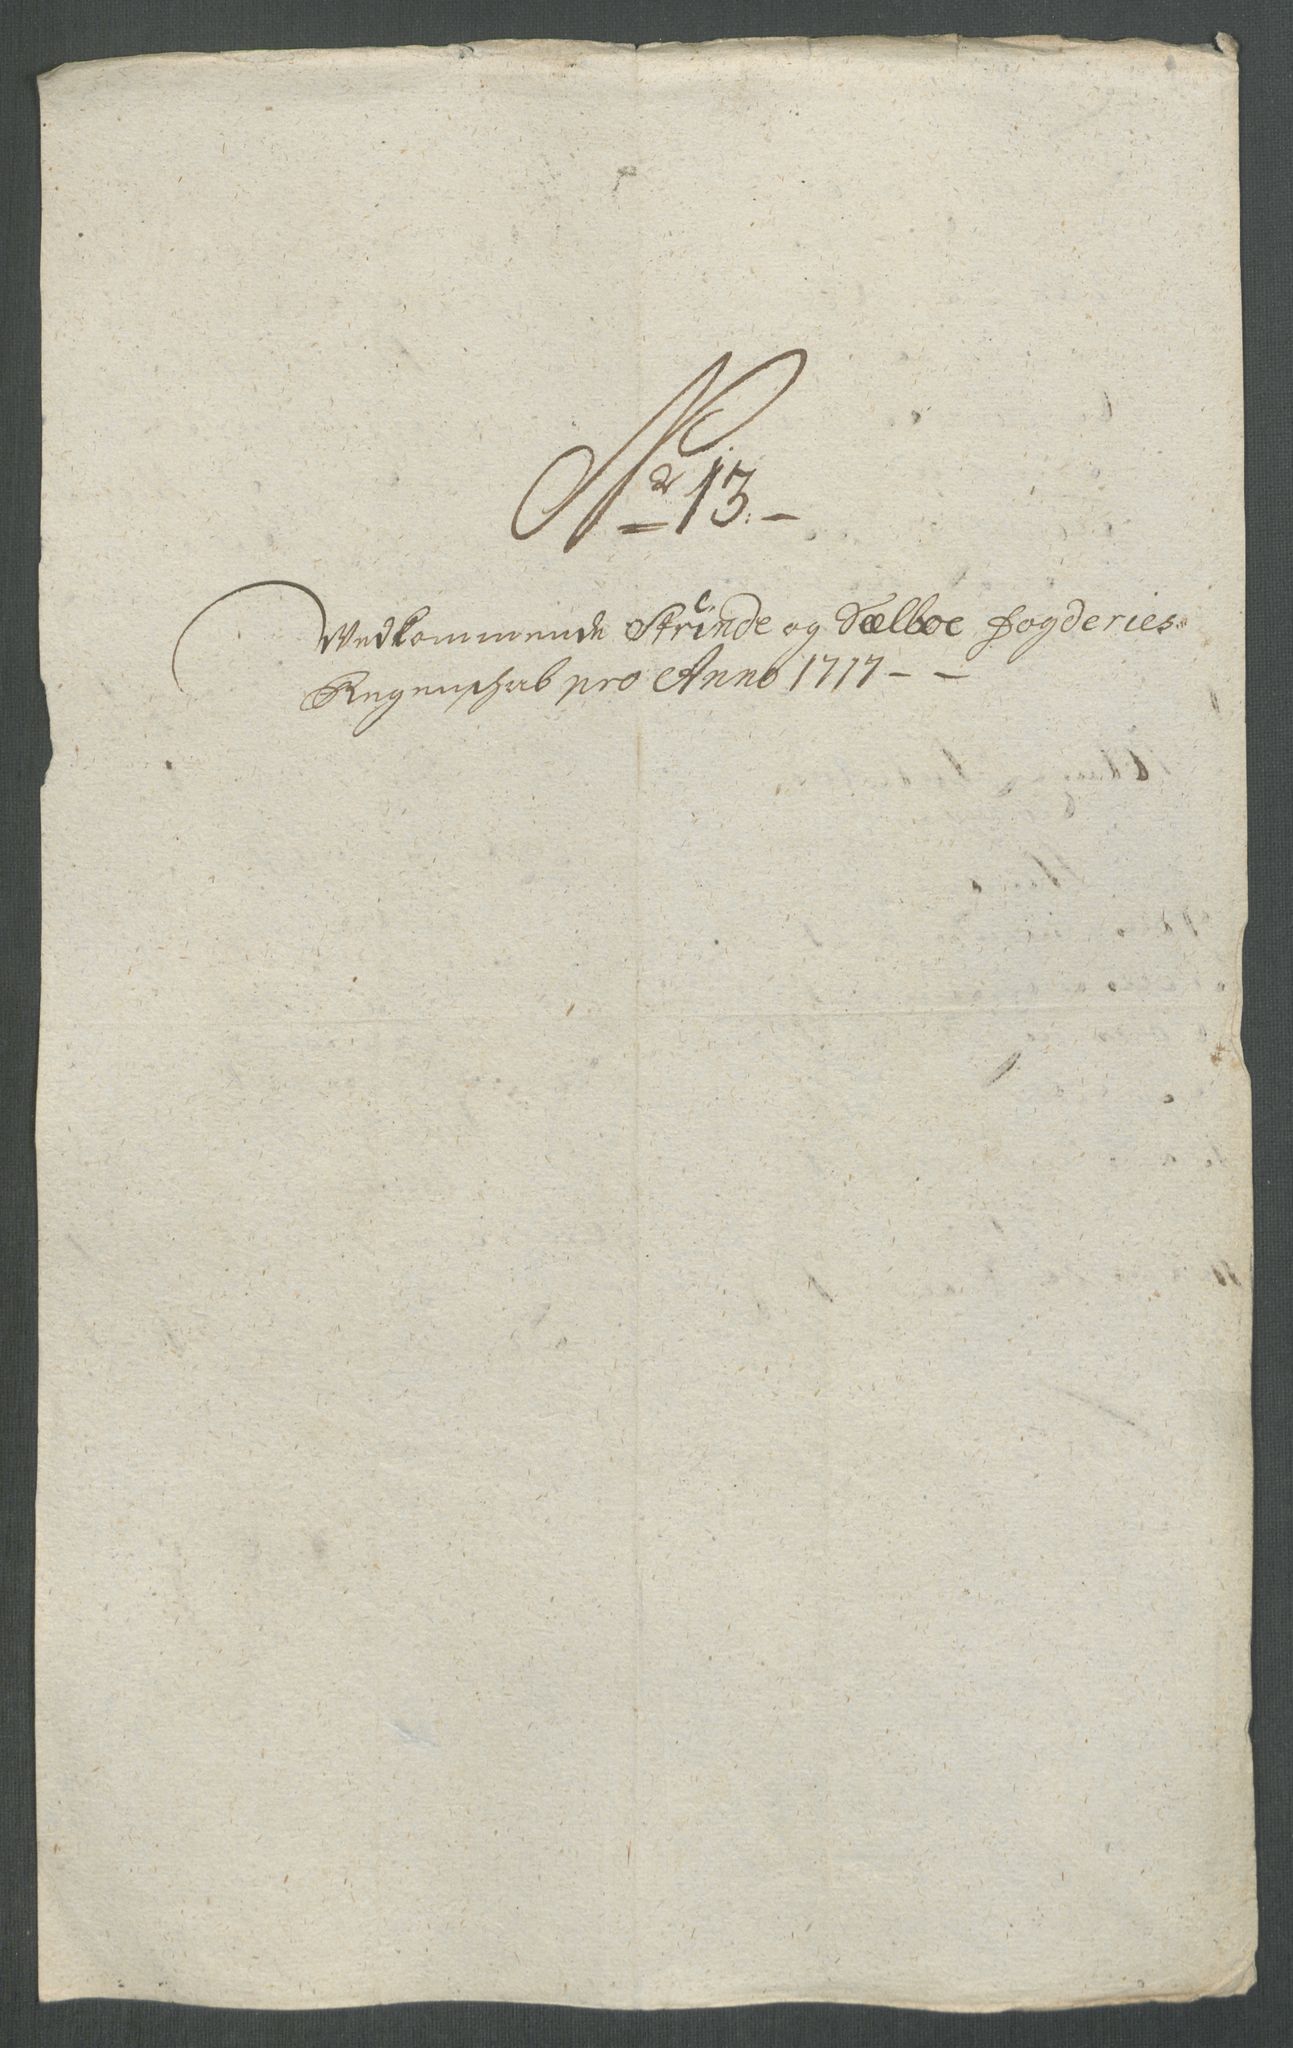 Nr 13.
Vedkommende Strinde og Sælboe fogderies
Regenschab pro Anno 1717